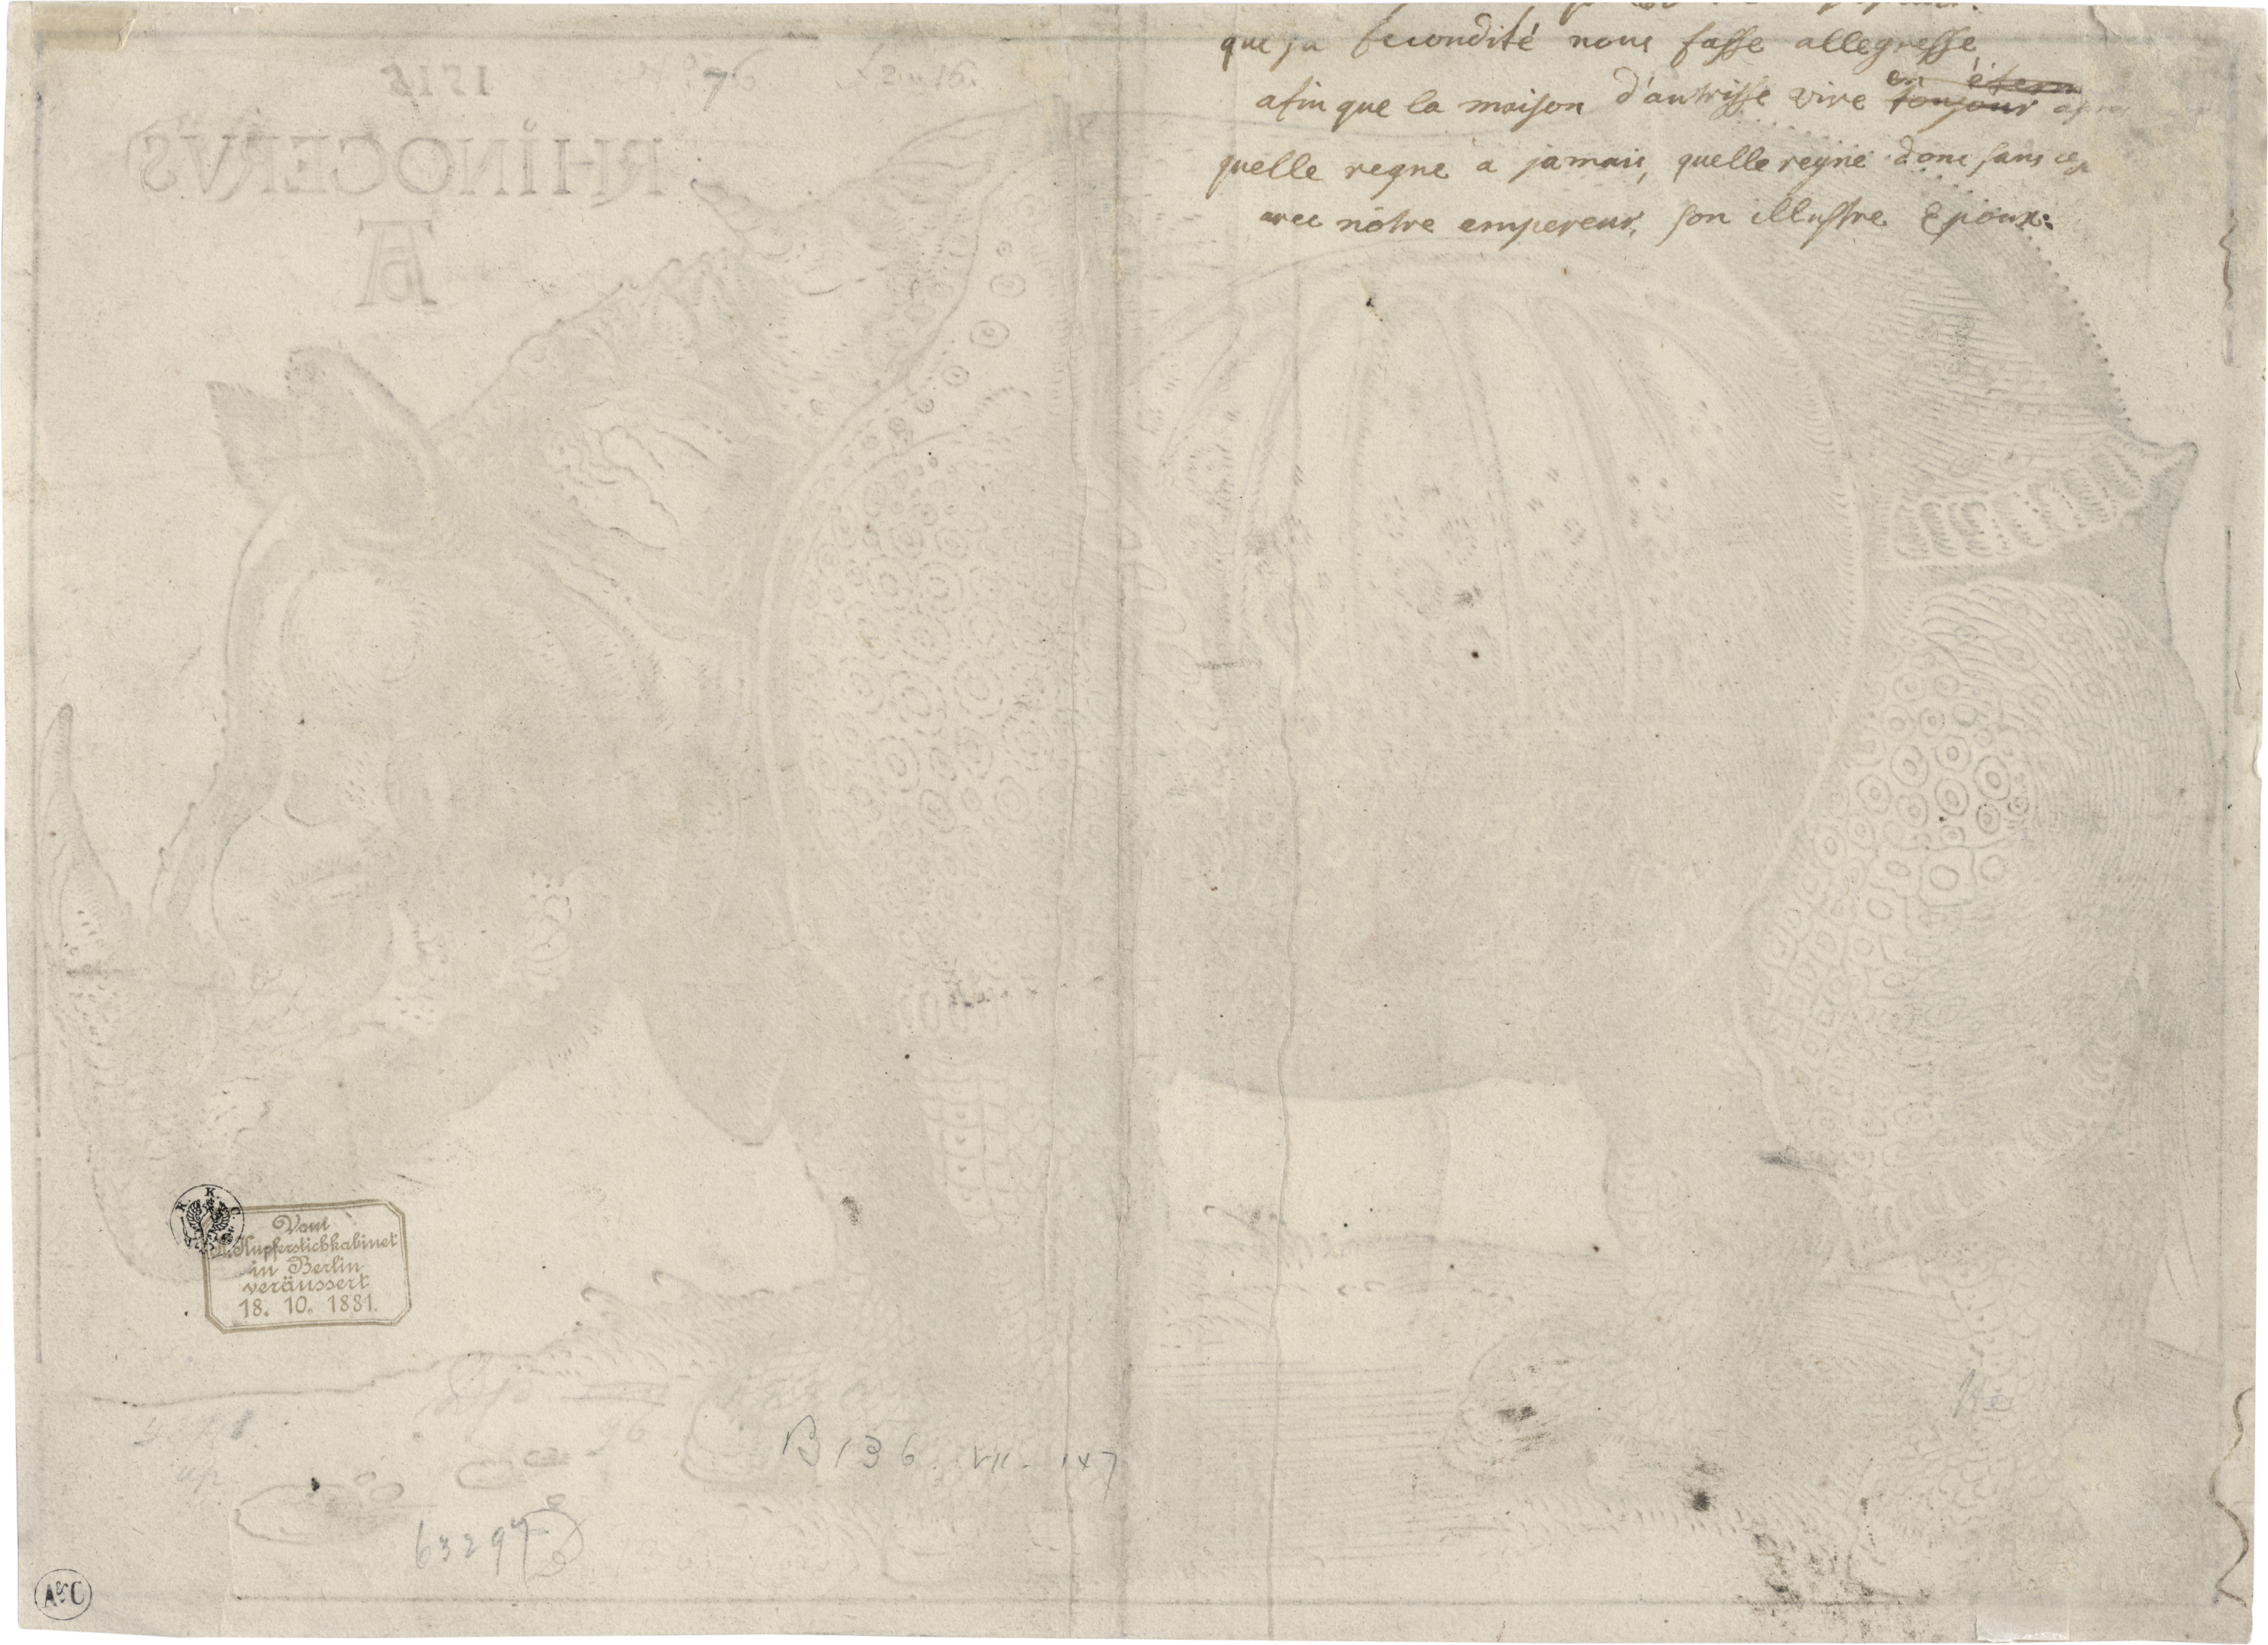 que sa fecondité nous fasse allegresse
afin que la maison d'autrisse vive en étern toujour
quelle regne a jamais, quelle regne donc sans
avec nôtre empereur, son illustre Epoux:
1515
RHINOCERVS
AD
K. K. C.
Vom
K. Kupferstichkabinet
in Berlin
veräussert
18. 10. 1881.
B 136. VII. 147
63297
A&C